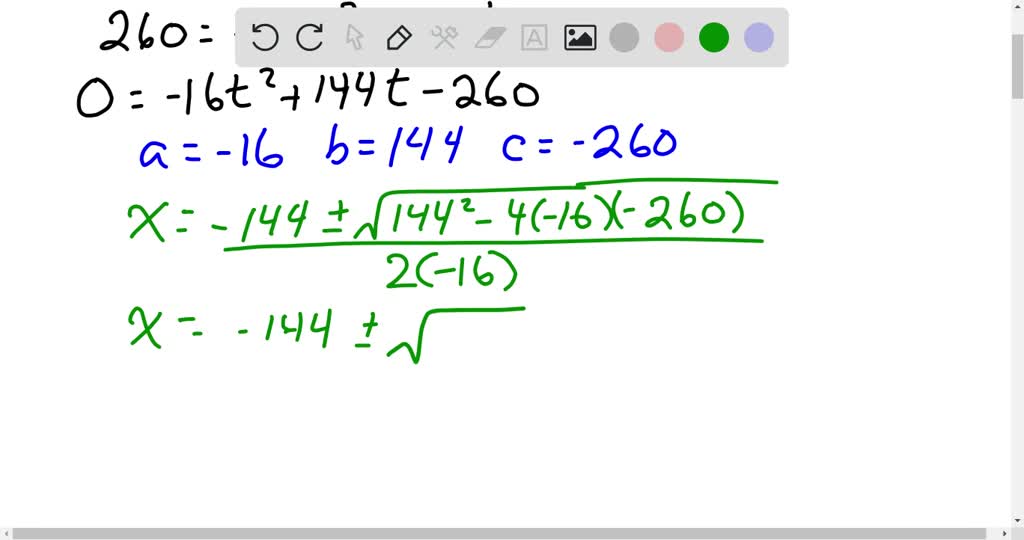 260 =
0 = -16t² + 144t - 260
a = -16 b = 144 c = -260
x = -144 ± √144² - 4(-16)(-260)
2(-16)
x = -144 ± √